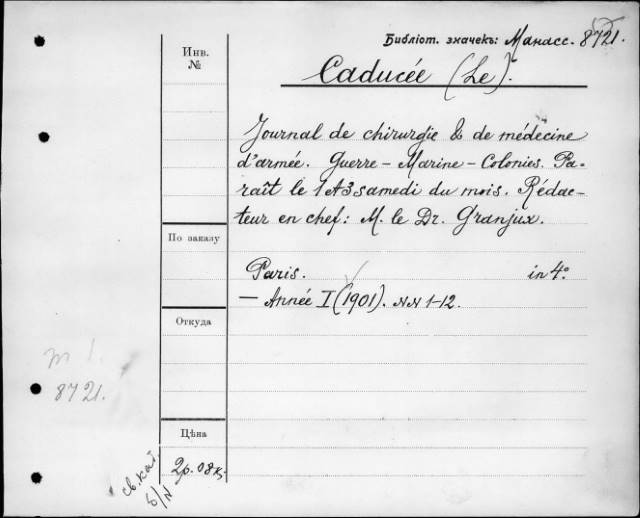 Библіот. значекъ: Манасс. 8721.
Инв.
№
Caducée (Le).
Journal de chirurgie & de médecine
d'armée. Guerre - Marine - Colonies. Pa-
raît le 1 & 3 samedi du mois. Rédac-
teur en chef: M. le Dr. Granjux.
По заказу
Paris. in 4º
— Année I (1901). NN 1-12.
Откуда
m 1.
8721.
Цѣна
2р. 08к.
св. кат.
б/N